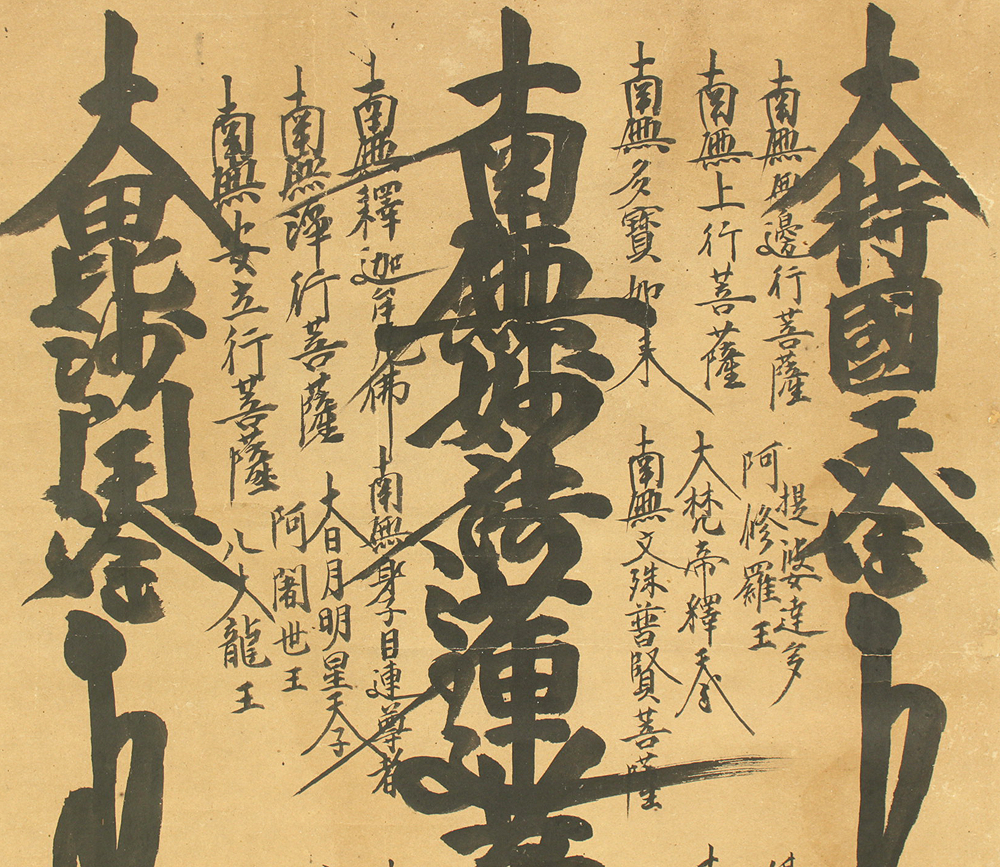 大持國天王
南無無邊行菩薩
南無上行菩薩
南無多寶如来
南無妙法蓮華
南無釋迦牟尼佛
南無淨行菩薩
南無安立行菩薩
大毘沙門天王
提婆達多
阿修羅王
大梵帝釋天
南無文殊普賢菩薩
南無身子目連尊者
大日月明星天子
阿闍世王
八大龍王